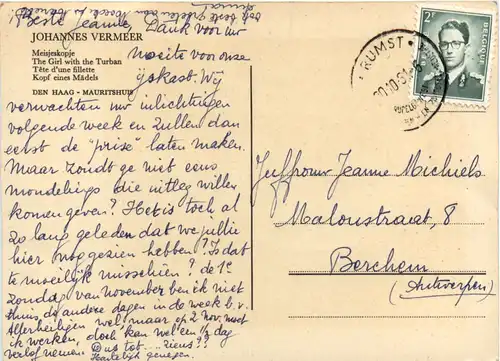 Beste Jeanne, Dank voor uw
JOHANNES VERMEER
Meisjeskopje
The Girl with the Turban
Tête d'une fillette
Kopf eines Mädels
DEN HAAG - MAURITSHUIS
moeite voor onze
ijskast. Wij
verwachten uw inlichtingen
volgende week en zullen dan
eerst de "prise" laten maken.
Maar zoudt ge niet eens
mondelings die uitleg willen
komen geven? Het is toch al
zo lang geleden dat we jullie
hier nog gezien hebben? Is dat
te moeilijk misschien? de 1e
Zondag van November ben ik niet
thuis, de andere dagen in de week b.v.
Allerheiligen wel! maar op 2 nov. moet
ik werken, doch kan wel een ½ dag
verlof nemen. Dus tot... ziens??
Hartelijk genegen.
RUMST
BELGIQUE
2F
Juffrouw Jeanne Michiels
Maloustraat, 8
Berchem
(Antwerpen)